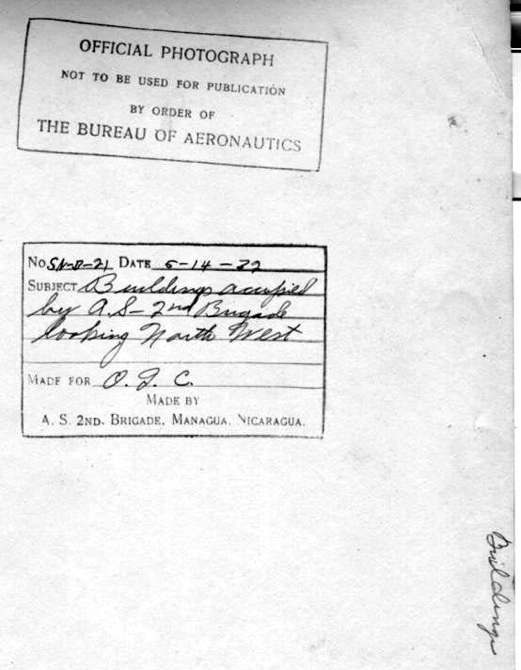 OFFICIAL PHOTOGRAPH
NOT TO BE USED FOR PUBLICATION
BY ORDER OF
THE BUREAU OF AERONAUTICS
No DATE 5-14-32
SUBJECT Buildings acupied
by A.S- 2nd Brigade
looking North West
MADE FOR O. I. C.
MADE BY
A. S. 2ND. BRIGADE, MANAGUA, NICARAGUA.
Buildings